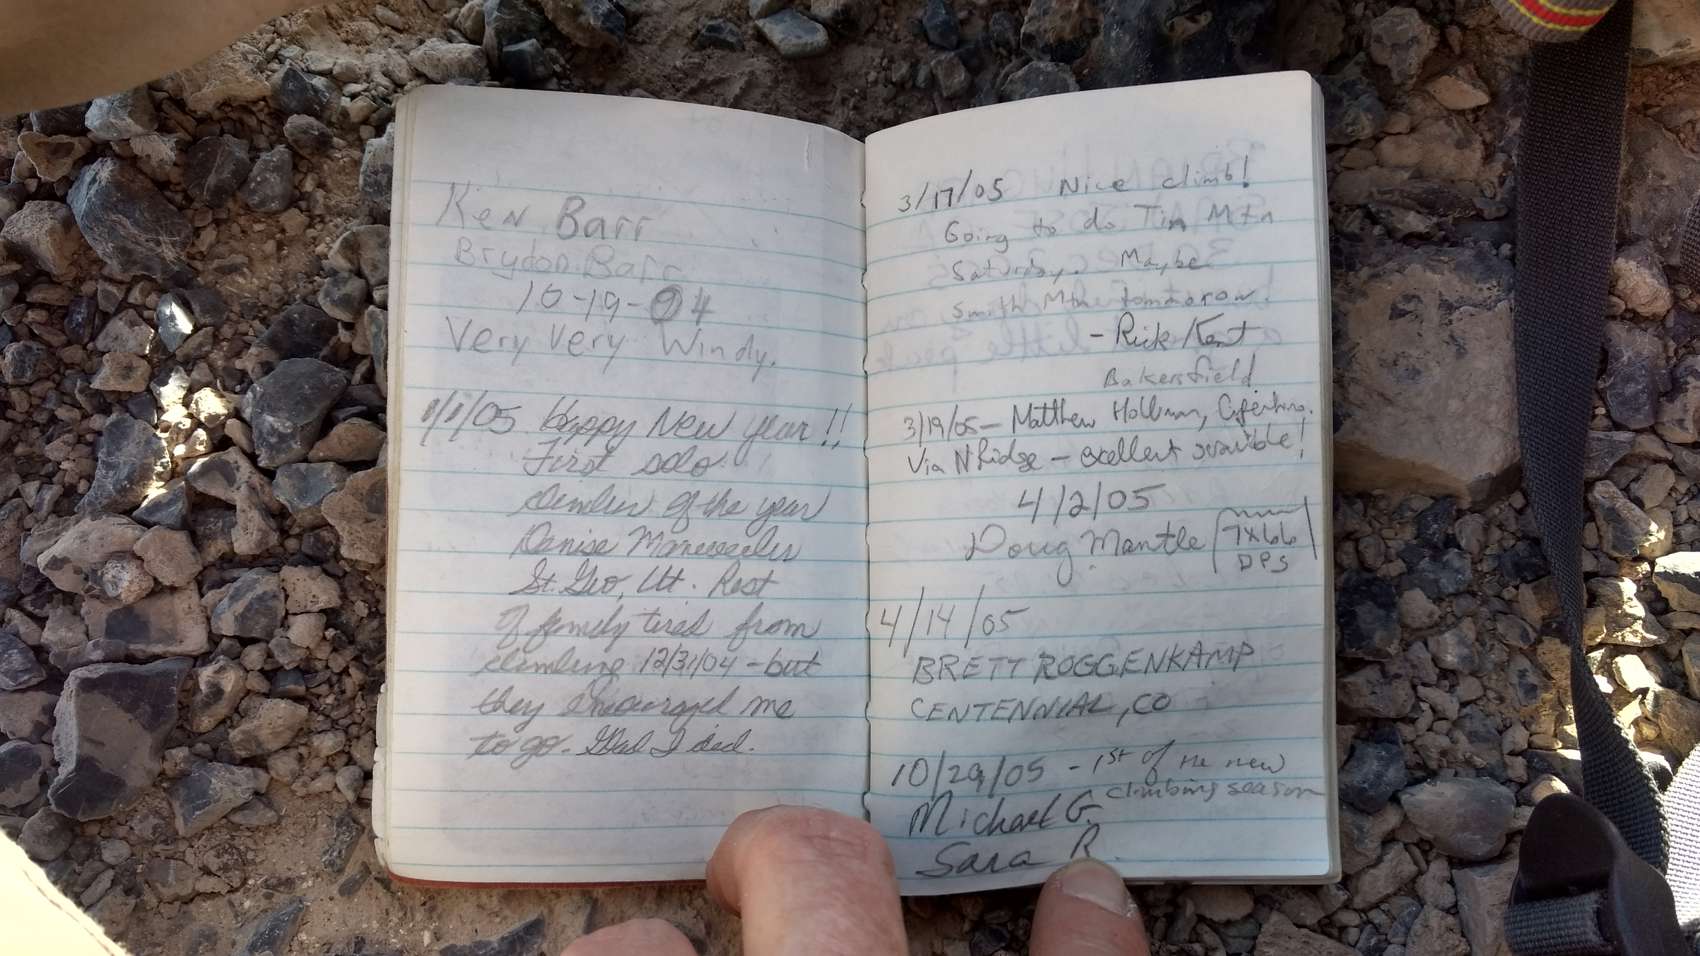 Ken Barr
Brydon Barr
10-19-04
Very Very Windy.
1/1/05 Happy New year!!
First solo
climber of the year
Denise
St. Geo, Ut. Rest
of family tired from
climbing 12/31/04 - but
they encouraged me
to go. Glad I did.
3/17/05 Nice climb!
Going to do Tin Mtn
Saturday. Maybe
Smith Mtn tomorrow.
- Rick Kent
Bakersfield
3/19/05 - Matthew Holliman, Cupertino.
Via N Ridge - excellent scramble!
4/2/05
Doug Mantle 7X66
DPS
4/14/05
BRETT ROGGENKAMP
CENTENNIAL, CO
10/29/05 - 1st of the new
climbing season
Michael G.
Sara R.